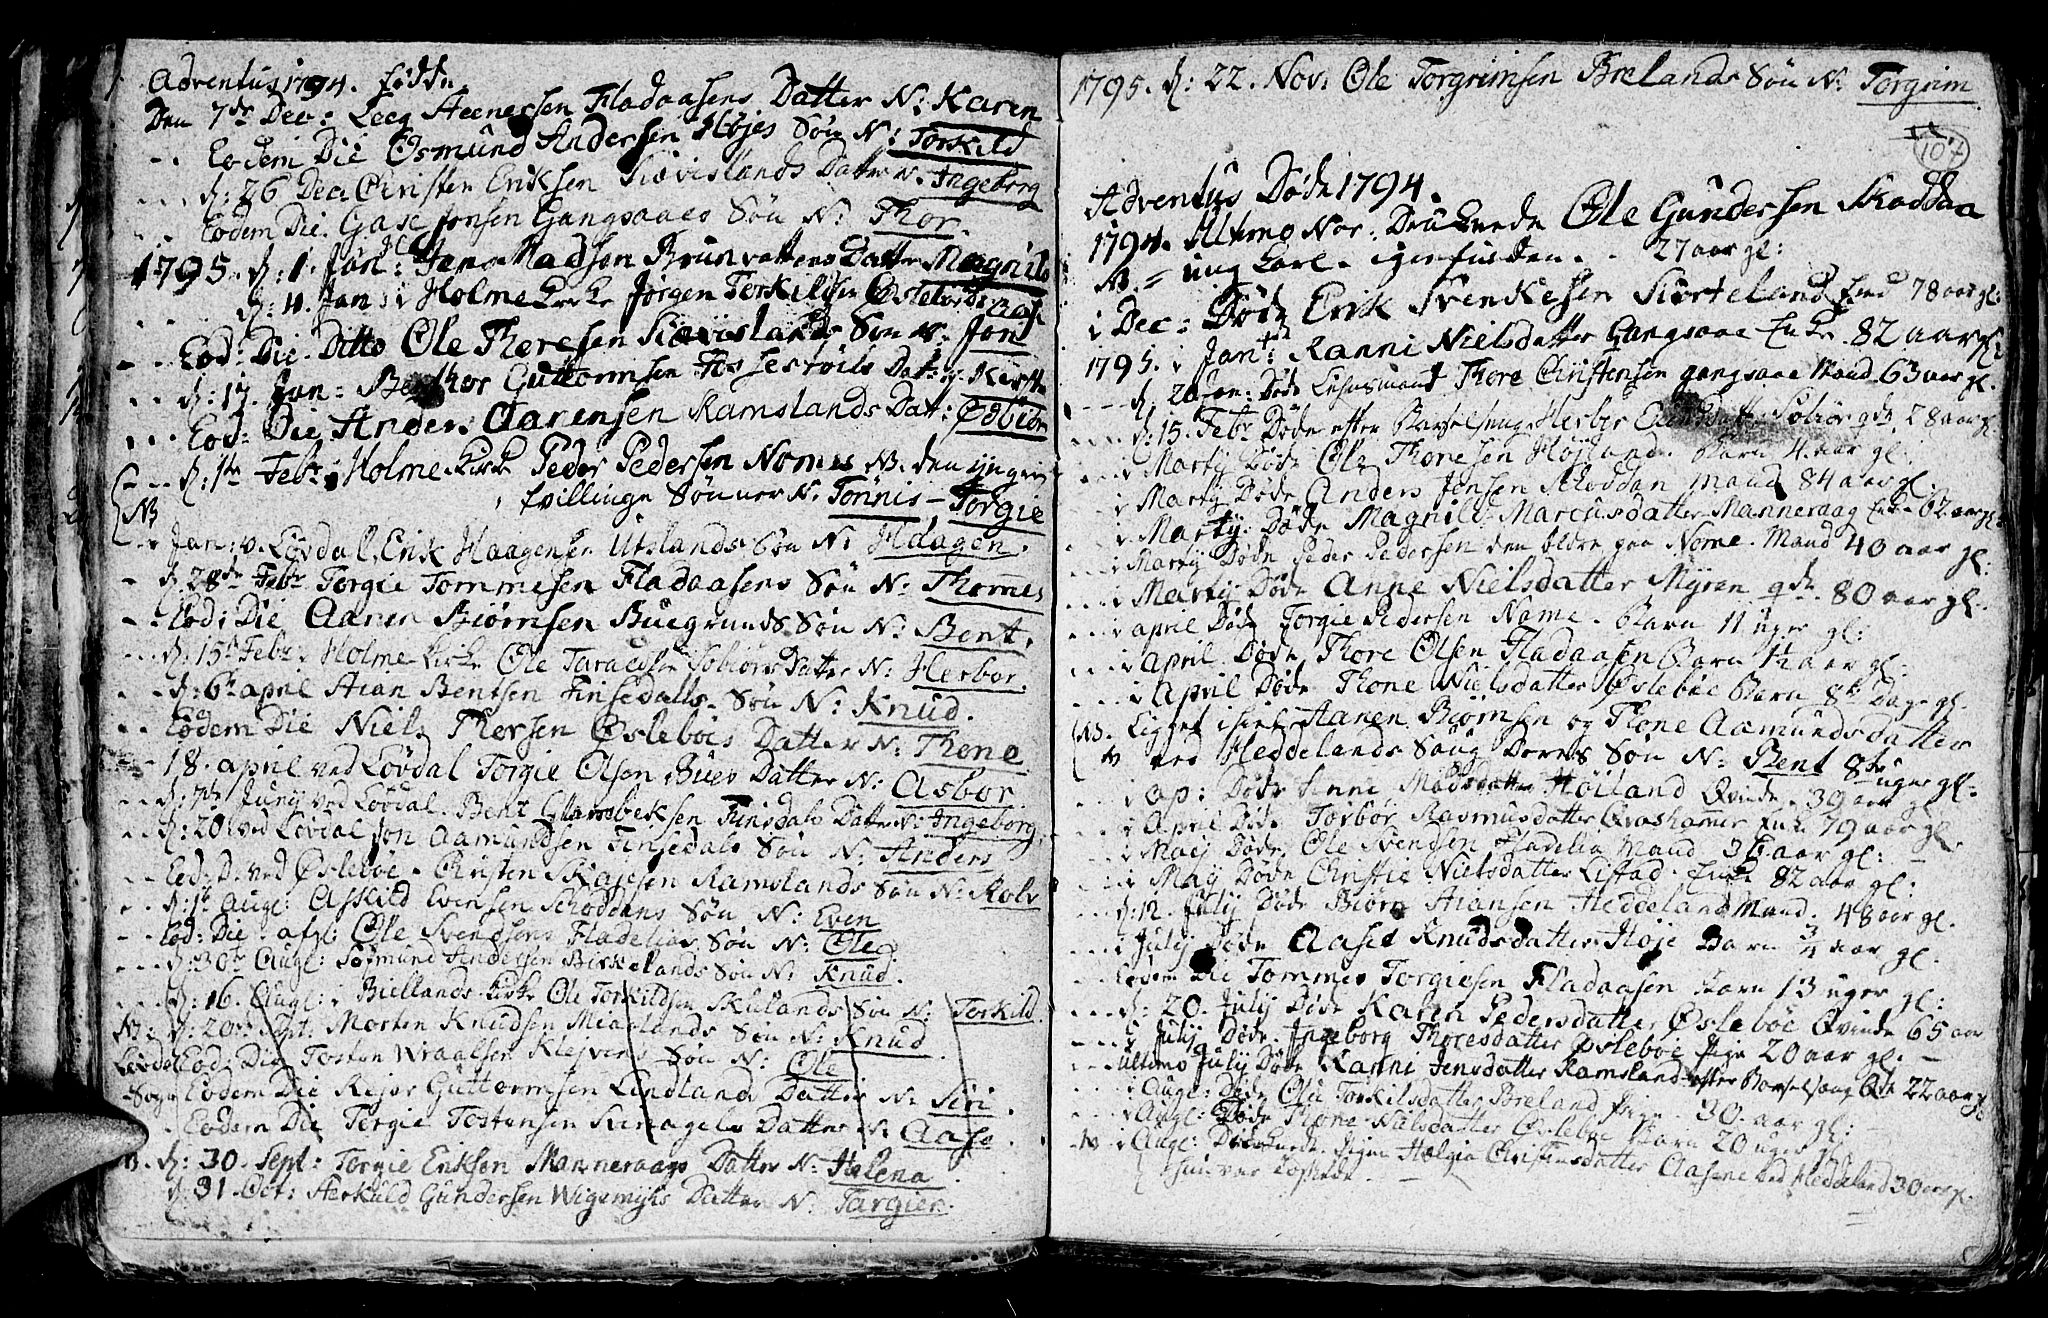 Adventus 1794. Fødde
Den 7de Dec: Fladaasens Datter N: Karen
Eodem Die Osmund Andersen Højes Søn N: Torkild
d: 26 Dec. Christen Eriksen Datter N. Ingeborg
Eodem Die. Jonsen Gangsaaes Søn N: Thor.
1795. d: 1. Jan: Jens Madsen Brunvattens Datter Magnild
d: 4. Jan: i Holme Kirke Jørgen Torkildsen Øslebøes
Eod: Die. Ditto Ole Thoresen Søn N. Jon
d: 17. Jan: Guttormsen Datt: N. Kirsten
Eod: Die Anders Aarensen Ramslands Datt: Ødbiør
d: 1te Febr: i Holme Kirke Peder Pedersen Nomes NB. den yngre
NB tvillinge Sønner N. Tønnis - Torgie
Jan: v. Løvdal. Erik Haagensen Utslands Søn N: Haagen.
d: 28de Febr Torgie Tommesen Fladaasens Søn N: Thommes
Eod: Die Aanen Biørnsen Buegrunds Søn N: Bent.
d: 15de Febr. Holme Kirke Ole Datter N: Herbor.
d: 6te april Aian Bentsen Finsedalls Søn N: Knud.
Eodem Die Niels Thorsen Øslebøes Datter N: Thone
18. april ved Løvdal Torgie Olsen Bues Datter N: Asbor
d: 7de Junij ved Løvdal. Bent Finsdals Datter N: Ingeborg.
d: 20 ved Løvdal Jon Aamundsen Finsedals Søn N: Anders
Eod. D. ved Øslebøe. Christen Ramslands Søn N: Rolv
d: 1te Augl: Askild Evensen Schoddans Søn N: Even
Eod: Die. afgl: Ole Svendsens Fladelias Søn N: Ole.
d: 30te Augl: Andersen Birkelands Søn N: Knud.
d: 16. Augl: i Biellands Kirke Ole Torkildsen Skulands Søn N: Torkild.
NB: d: 20de Sept: Morten Knudsen Miaalands Søn N: Knud
Løvdal Eod: Die Tosten Wraalsen Klejvens Søn N: Ole
Sogn Eodem Die Rejer Guttormsen Lindlands Datter N: Siri.
Eodem Die Torgie Tostensen Datter N: Aase.
d: 30. Sept: Torgie Eriksen Manneraags Datter N: Helena
d: 31 Oct: Aerkuld Gundersen Wigemyhs Datter N: Targier.
1795. d: 22. Nov: Ole Torgrimsen Brelands Søn N: Torgrim
107
Adventus Døde 1794.
1794. Ultimo Nov: Druknede Ole Gundersen Skoddan
NB. ung Karl. igenfunden. 27 aar gl:
i Dec: Døde Erik Svenkesen 78 aar gl:
1795. i Jan: Ranni Nielsdatter Gangsaae Enke. 82 aar gl:
d. 20 Jan: Døde Lensmand Thore Christensen gangsaae Mand 63 aar gl.
d: 15. Febr Døde efter Barselseng Herber 28 aar gl.
i Martij Døde Ole Thoresen Højland. Barn 4 aar gl.
i Martij Døde Anders Jonsen Schoddan Mand 84 aar gl.
i Martij. Døde Magnild Marcusdatter Manneraag Enke 62 aar gl:
i Martij Døde Peder Pedersen den eldre paa Nome. Mand 40 aar gl:
i Martij Døde Anne Nielsdatter Myren 80 aar gl.
i april Døde Torgie Pedersen Nome. Barn 11 uger gl:
i april. Døde Thore Olsen Fladaasen Barn 1½ aar gl.
i April Døde. Thone Nielsdatter Øslebøe Barn 8te Dage gl.
NB. Ligget ihiel Aanen Biørnsen og Thone Aamundsdatter
ved Heddelands Saug Deres Søn N: Bent 8te uger gl.
i ap: Døde Anni Madsdatter Høiland Qvinde. 39 aar gl:
i April Døde Torbor Rasmusdatter Enke 79 aar gl.
i Maij Døde. Ole Svendsen Fladelia Mand 36 aar gl:
i Maij Døde Christie Nielsdatter Listad. Enke 82 aar gl:
d: 12. Julij Døde Biørn Aiansen Heddeland Mand. 48 aar gl.
i Julij Døde Aaset Knudsdatter Høje Barn ¾ aar gl.
Eodem Die Tommes Torgiesen Fladaasen Barn 13 uger gl:
d: 20. Julij Døde Karen Pedersdatter Øslebøe Qvinde 65 aar
i Julij Døde. Ingeborg Thoresdatter Øslebøe Pige 20 aar gl.
Ultimo Julij Døde Ranni Jensdatter Ramsland efter Barselseng 22 aar gl
i Augl: Døde Olu Torkilsdatter Breland Pige. 30. aar gl:
i Augl: Døde Thone Nielsdatter Øslebøe Barn 20 uger gl.
i Augl: Druknede Pigen Helgia Christensdatter Aasene ved Heddeland 30 aar gl.
hun var